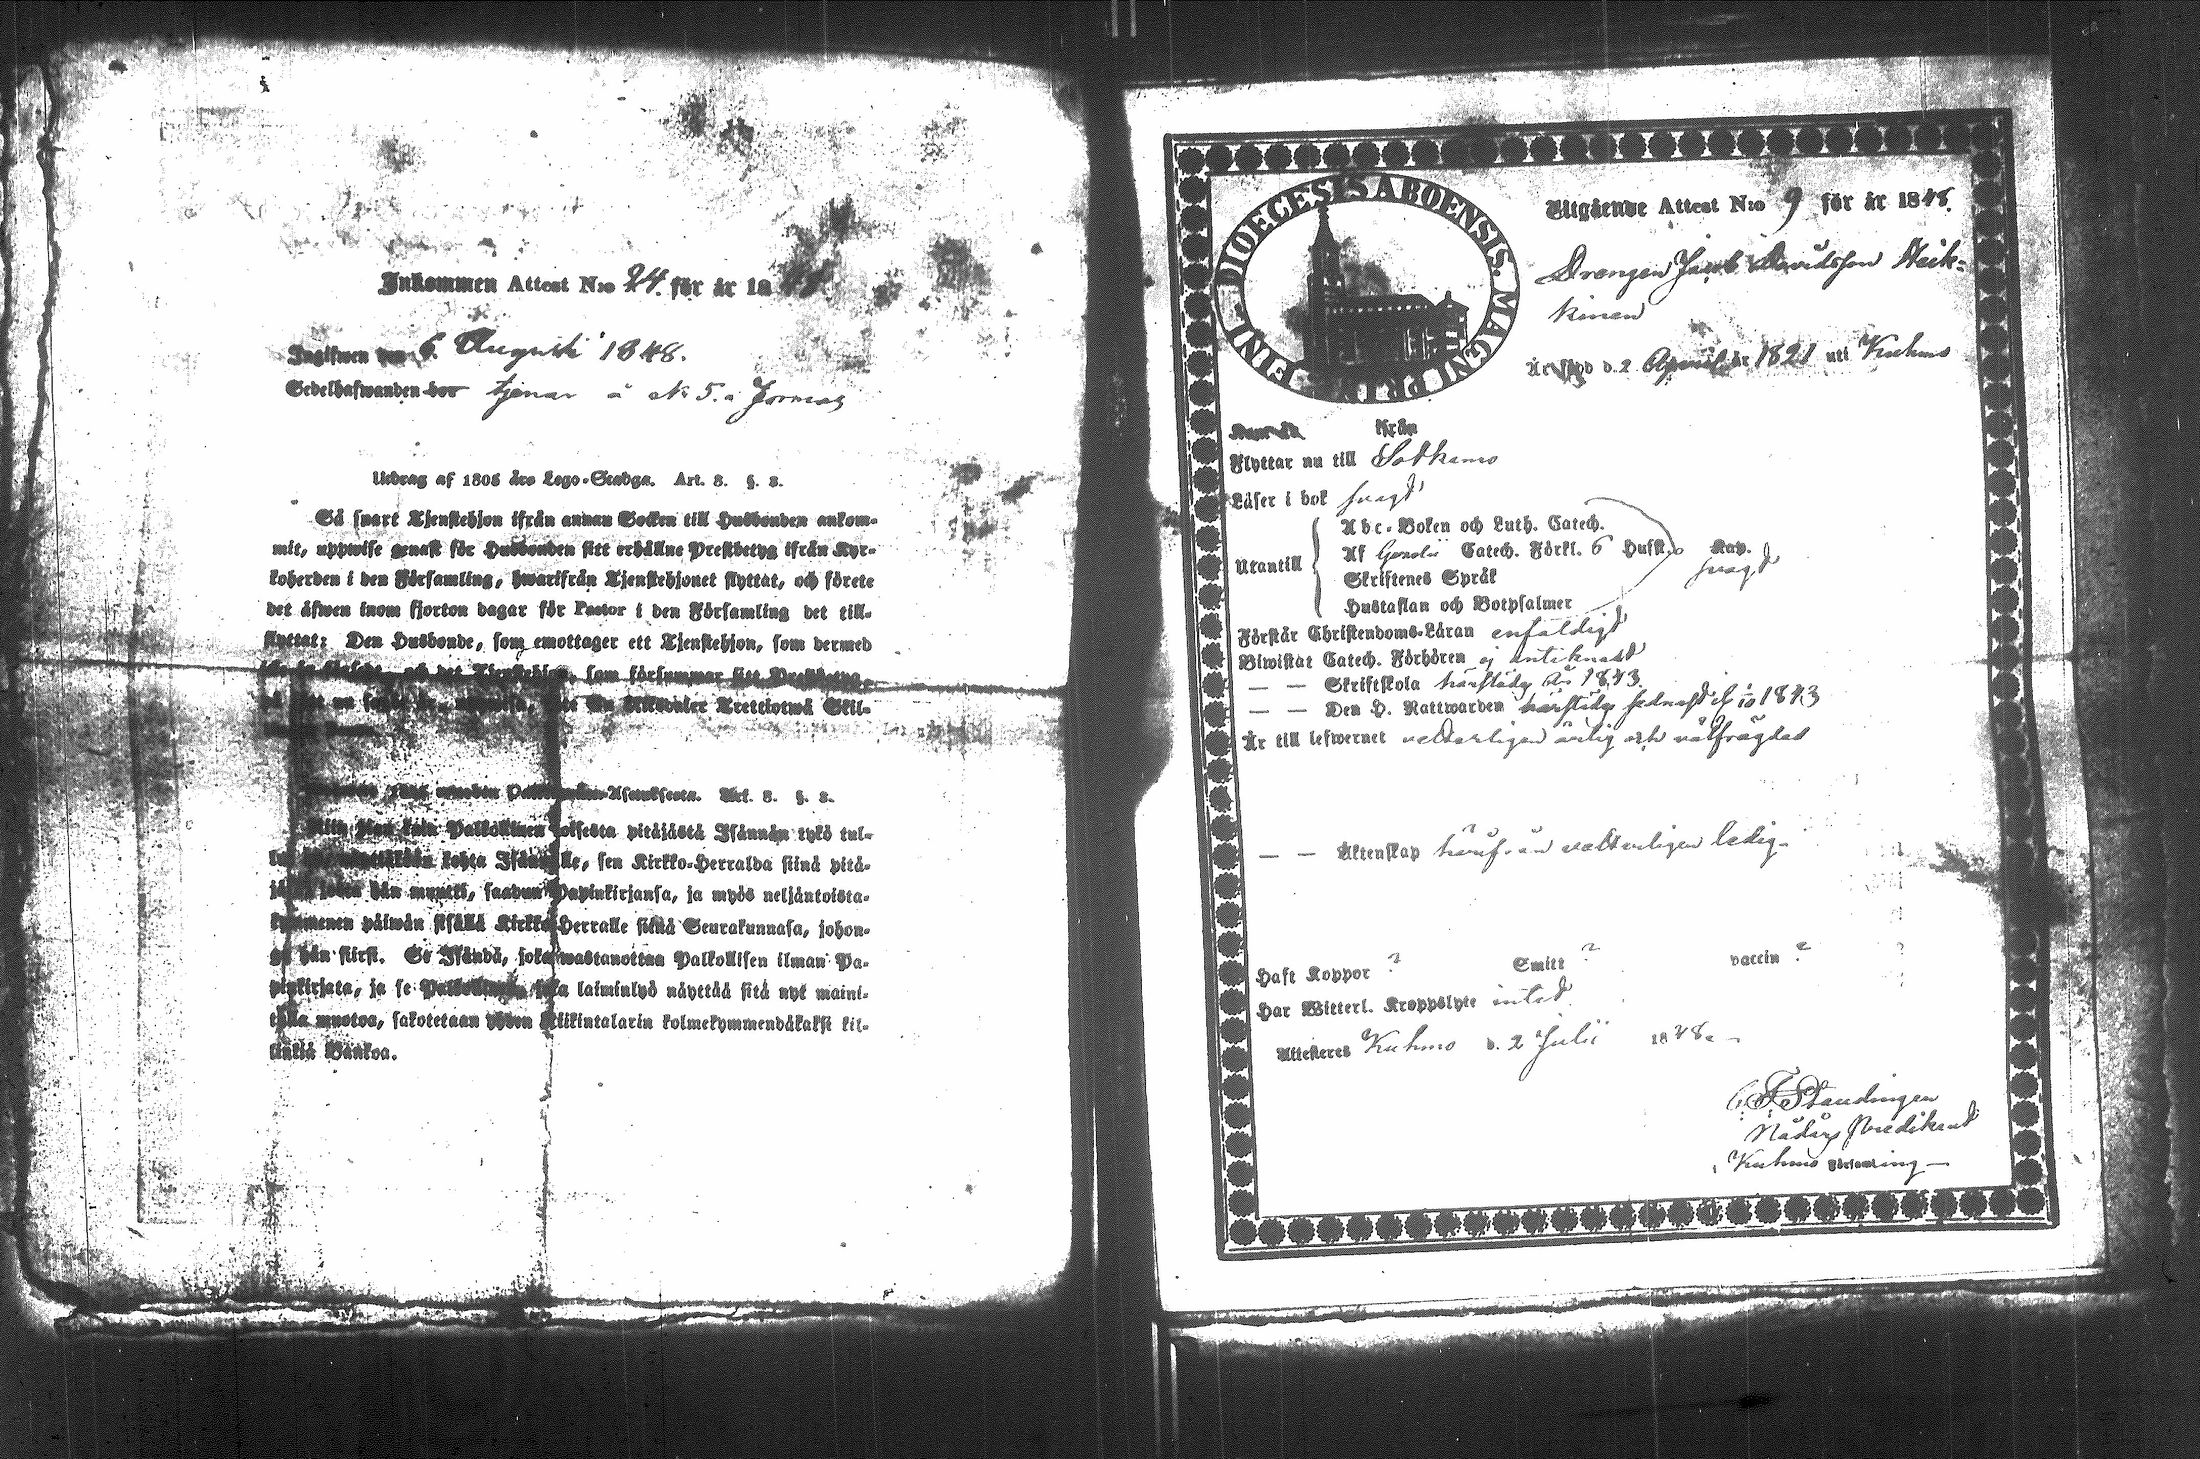 Inkommen Attest N:o 24. för år 18
Ingifwen den 6. Augusti 1848.
Sedelhafwanden bor tjenar å No 5. i Jormas
Utdrag af 1805 års Lego-Stadga. Art. 3. §. 3.
Så snart Tjenstehjon ifrån annan Socken till Husbonden ankom-
mit, uppwise genast för Husbonden sitt erhållne Prestbetyg ifrån Kyr-
koherden i den Församling, hwarifrån Tjenstehjonet flyttat, och förete
det äfwen inom fjorton dagar för Pastor i den Församling det till-
flyttat: Den Husbonde, som emottager ett Tjenstehjon, som dermed
och det Tjenstehjon, som försummar sitt Prestbetyg,
Riksdaler Trettiotwå Skil-
Asetuksesta. Art. 3. §. 3.
Niin pian kuin Palkollinen toisesta pitäjästä Isännän tykö tul-
kohta Isännälle, sen Kirkko-Herralda siinä pitä-
hän muutti, saadun Papinkirjansa, ja myös neljäntoista-
kymmenen päiwän sisällä Kirkko-Herralle siinä Seurakunnasa, johon-
ga hän siirsi. Se Isändä, joka wastanottaa Palkollisen ilman Pa-
pinkirjata, ja se Palkollinen, joka laiminlyö näyttää sitä nyt maini-
tulla muotoa, sakotetaan yhden Riikintalarin kolmekymmendäkaksi kil-
linkiä Bankoa.
DIOECESIS ABOENSIS. MAGNI PR. FENL.
Utgående Attest N:o 9 för år 1848.
Drengen Jacob Davidsson Heik-
kinen
Är född d. 2 April år 1821 uti Kuhmo
Kom år ifrån
Flyttar nu till Sotkamo
Läser i bok svagt
Utantill
Abc-Boken och Luth. Catech.
Af Gezelii Catech. Förkl. 6 Huf. Kap. svagt
Skriftenes Språk
Hustaflan och Botpsalmer
Förstår Christendoms-Läran enfaldigt
Biwistat Catech. Förhören ej antecknadt
— — Skriftskola härstädes år 1843.
— — Den H. Nattwarden härstädes sednast d. 1/10 1843
Är till lefwernet veterligen ärlig och välfrägdad
— — Äktenskap härifrån vetterligen ledig.
Haft Koppor ? Smitt ? vaccin ?
Har Witterl. Kroppslyte intet.
Attesteres Kuhmo d. 2 Julii 1848.
Nådårs Predikant
Kuhmo Församling